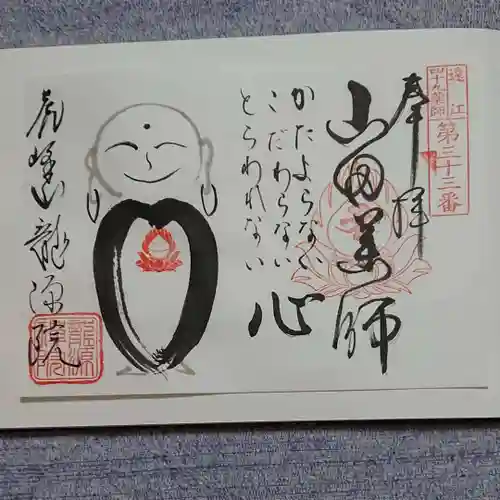 遠江
四十九薬師
第三十三番
奉拝
山田薬師
かたよらない
こだわらない
とらわれない
心
龍源院
龍源院